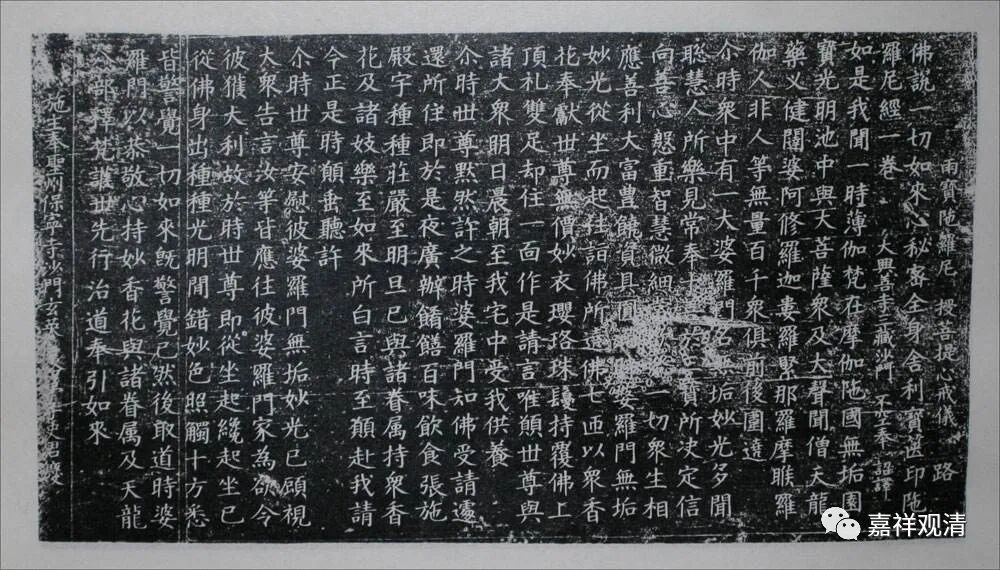 雨寶陁羅尼 授菩提心戒儀 路
佛說一切如來心秘密全身舍利寶篋印陁
羅尼經一卷 大興善寺三藏沙門 不空奉 詔譯
如是我聞一時薄伽梵在摩伽陁國無垢園
寶光明池中與大菩薩衆及大聲聞僧天龍
藥乂健闥婆阿修羅迦婁羅緊那羅摩睺羅
伽人非人等無量百千衆俱前後圍遶
尒時衆中有一大婆羅門 垢妙光多聞
聡慧人所樂見常奉十 三寶所决定信
向善心慇重智慧微細常 一切衆生相
應善利大富豊饒資具圓 婆羅門無垢
妙光從坐而起往詣佛所遶佛七迊以衆香
花奉獻世尊無價妙衣瓔珞珠鬘持覆佛上
頂礼雙足却住一面作是請言唯願世尊與
諸大衆明日晨朝至我宅中受我供養
尒時世尊默然許之時婆羅門知佛受請遽
還所住即於是夜廣辦餚饍百味飲食張施
殿宇種種莊嚴至明旦已與諸眷属持衆香
花及諸妓樂至如來所白言時至願赴我請
今正是時願垂聽許
尒時世尊安慰彼婆羅門無垢妙光已顧視
大衆告言汝等皆應往彼婆羅門家為欲令
彼獲大利故於時世尊即從坐起纔起坐已
從佛身出種種光明間錯妙色照觸十方悉
皆警覺一切如來旣警覺已然後取道時婆
羅門以恭敬心持妙香花與諸眷属及天龍
八部釋梵護世先行治道奉引如來
施主奉聖州保寧寺沙門玄英
嘉祥观清